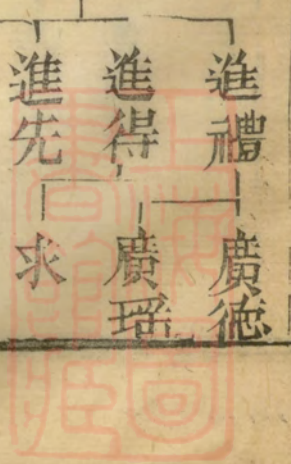 進禮 廣德
進得 廣瑶
進先 求